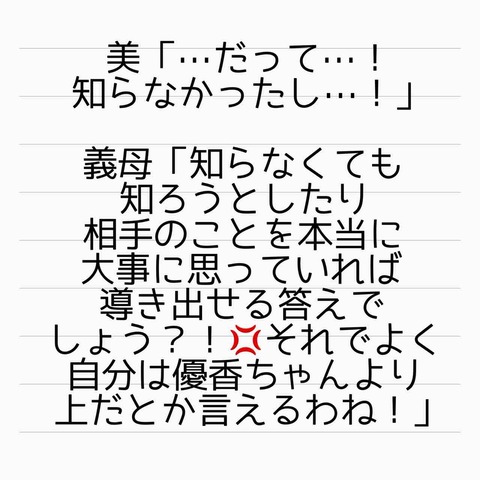 美「…だって…！
知らなかったし…！」
義母「知らなくても
知ろうとしたり
相手のことを本当に
大事に思っていれば
導き出せる答えで
しょう？！💢それでよく
自分は優香ちゃんより
上だとか言えるわね！」